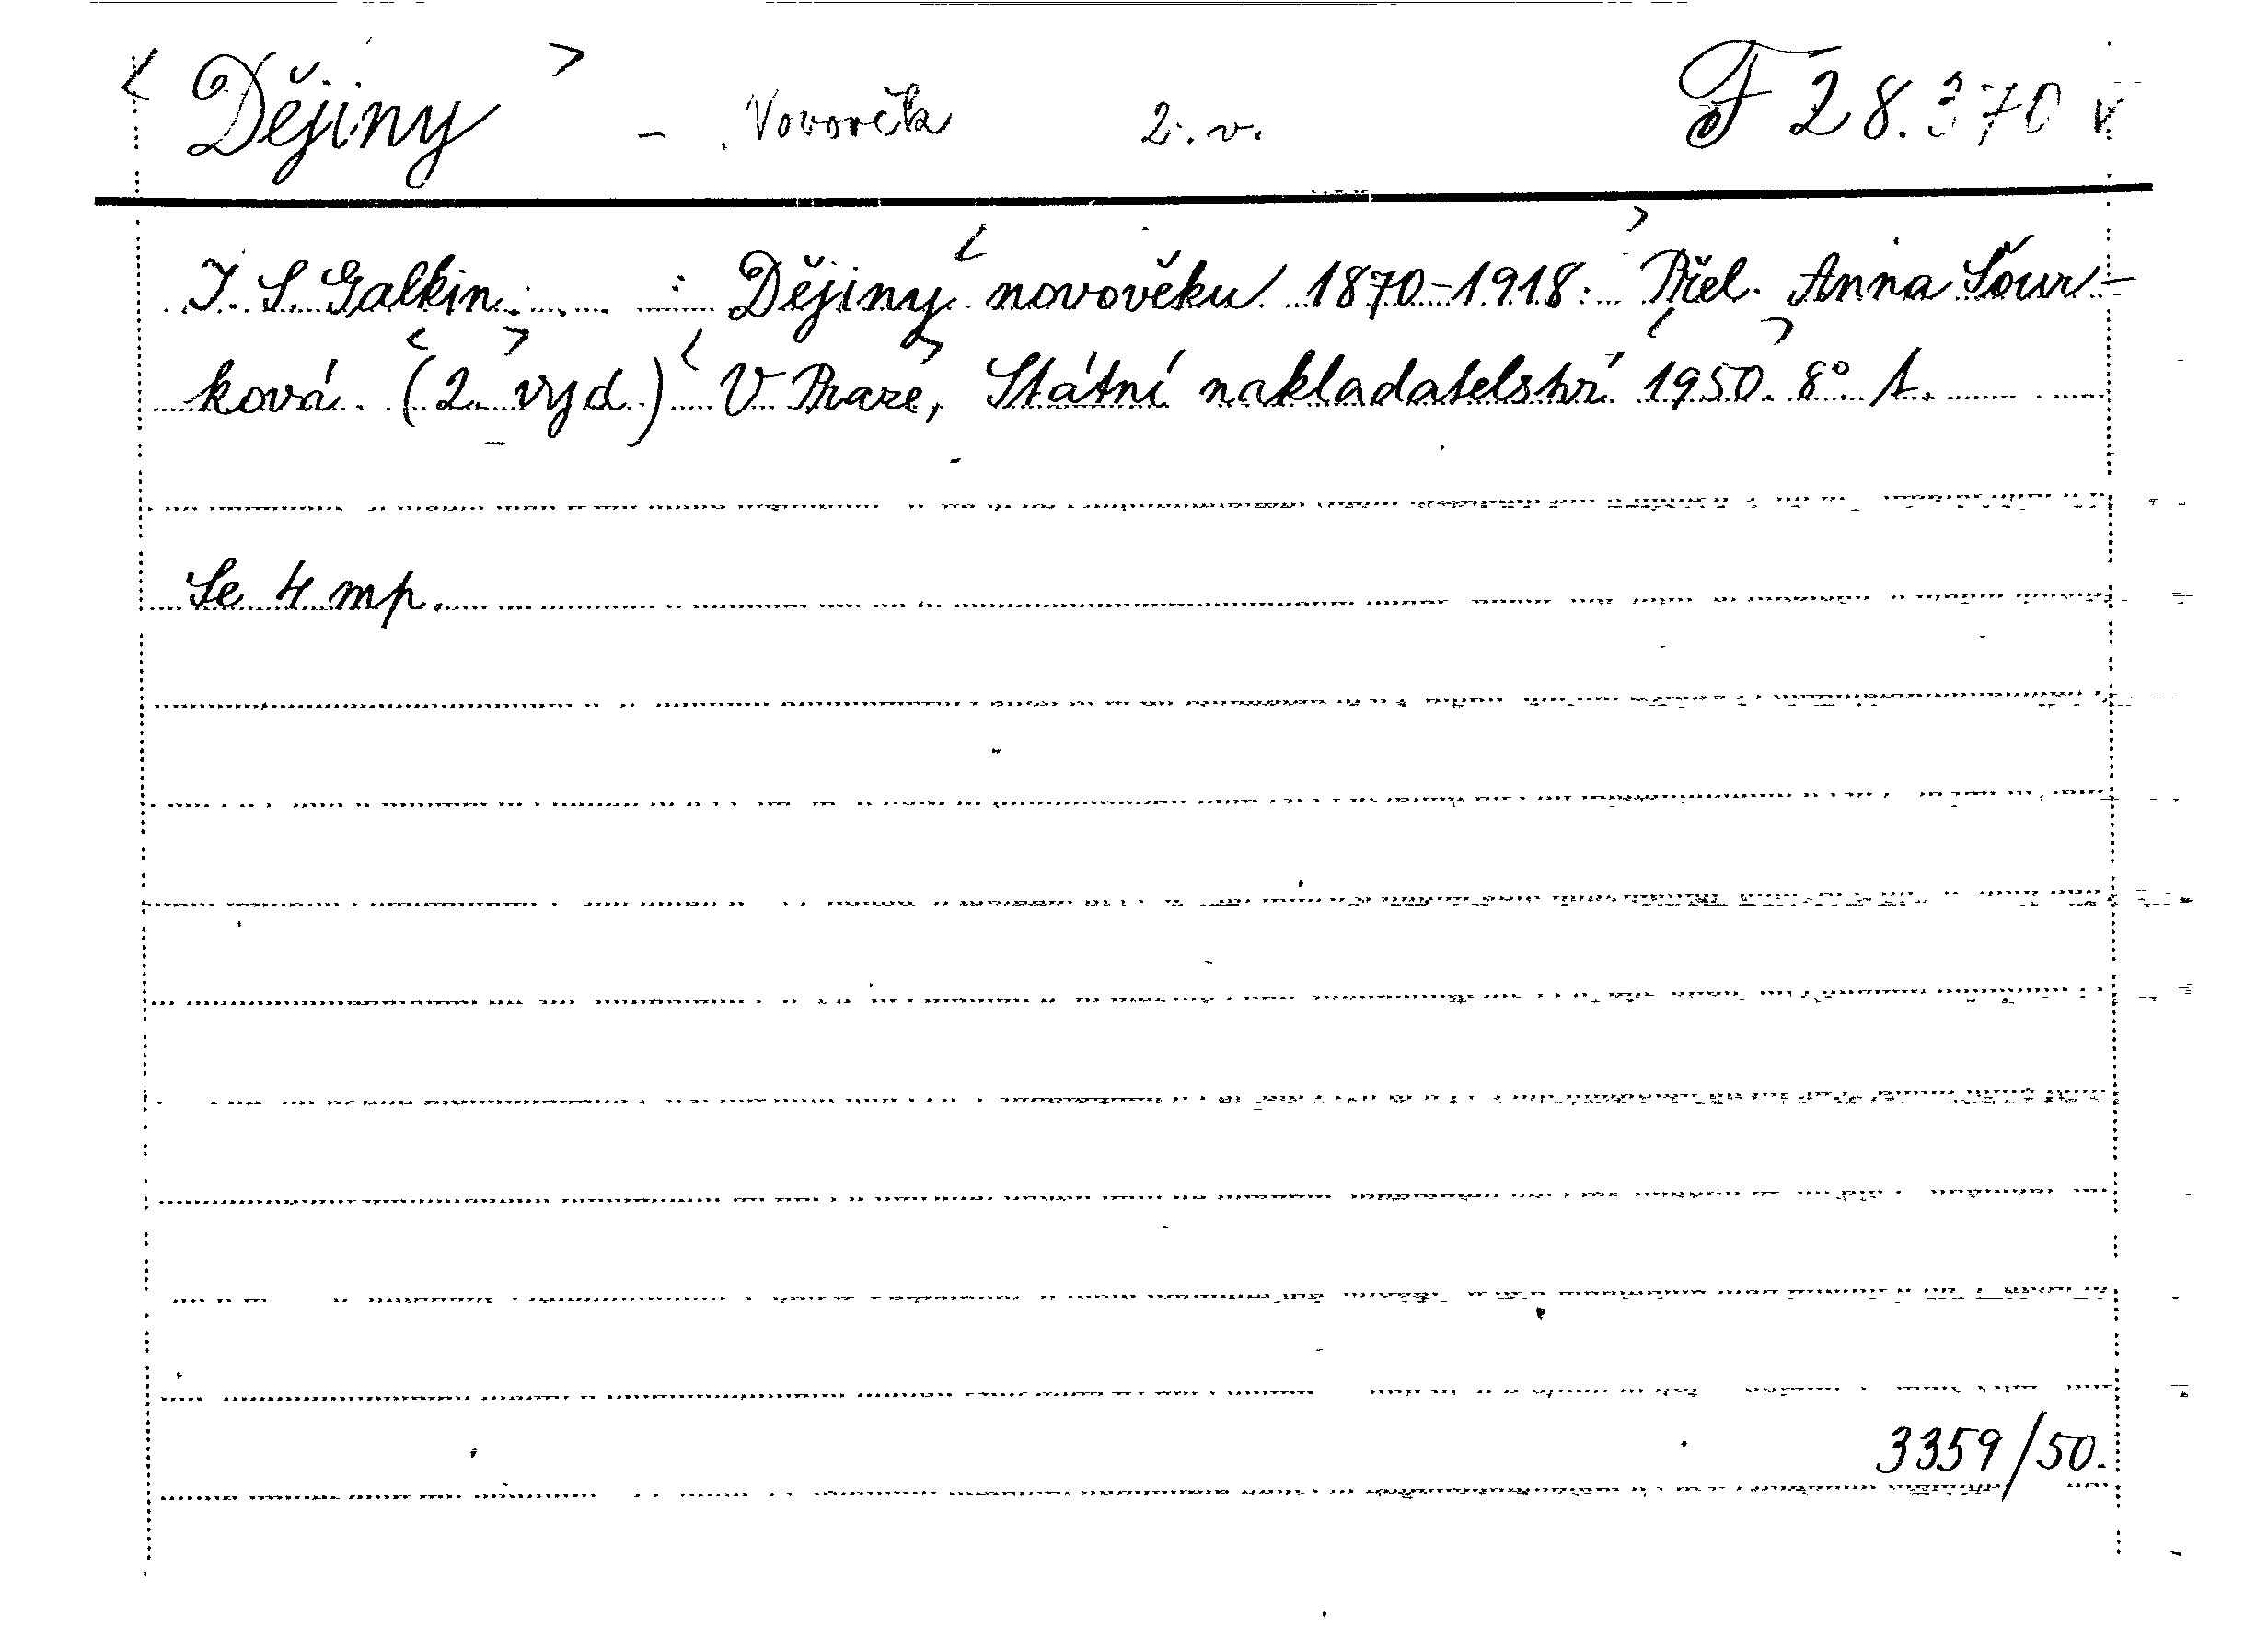 < Dějiny > - Novověk 2. v. F 28.370 v
I. S. Galkin : Dějiny novověku 1870-1918. Přel. Anna Šour-
ková. (2. vyd.) V Praze, Státní nakladatelství 1950. 8° A.
Se 4 mp.
3359/50.